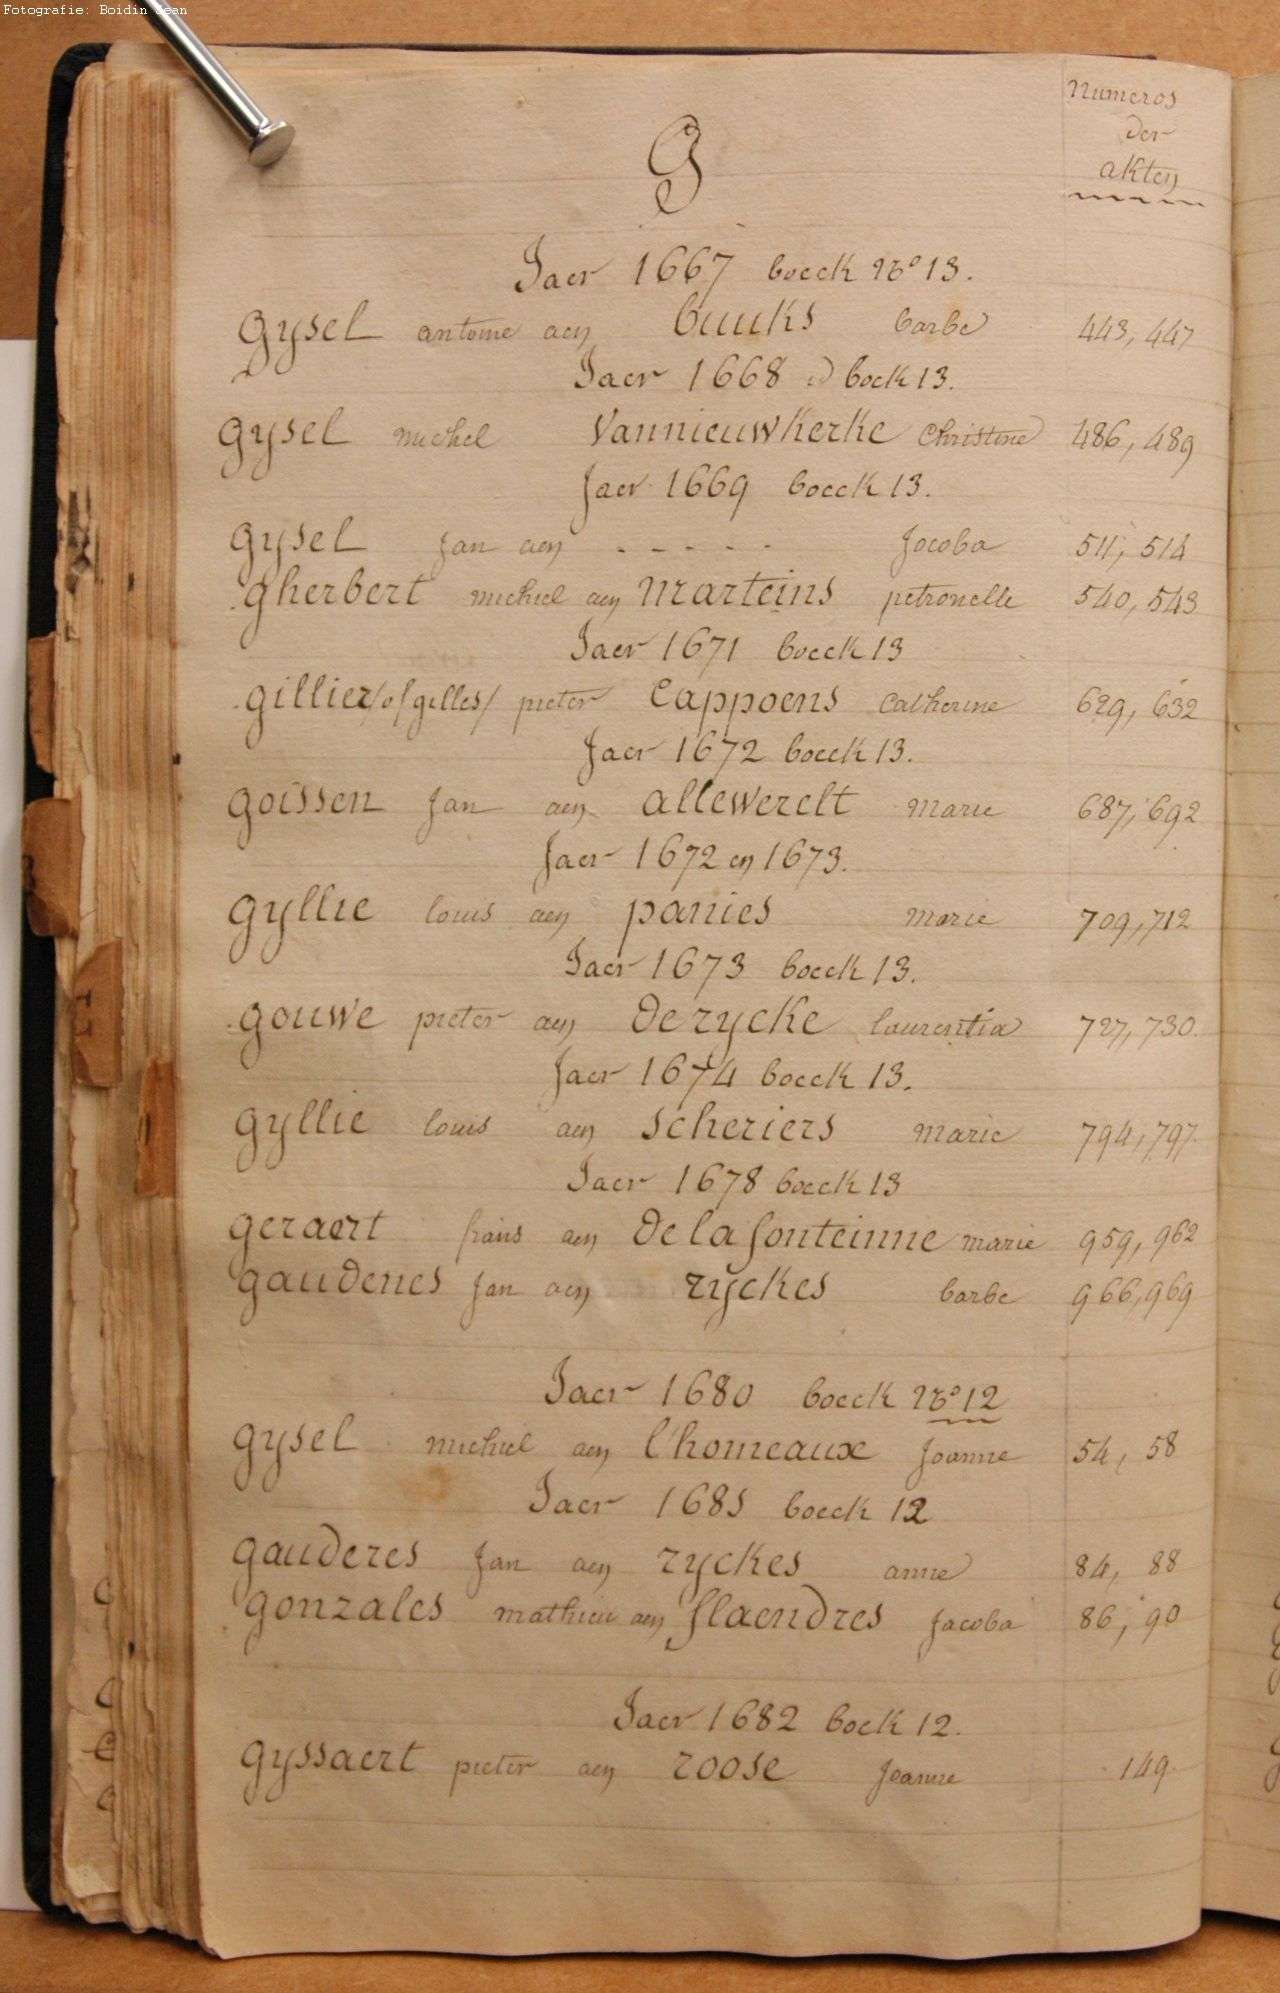 Fotografie: Boidin Jean
Numeros
der
akten
G
Jaer 1667 boeck No 13.
gysel antoine aen buuks barbe 443, 447
Jaer 1668 boek 13.
gysel michel Vannieuwkerke Christine 486, 489
Jaer 1669 boeck 13.
gysel Jan aen - - - - - Jocoba 511, 514
gherbert michiel aen marteins petronelle 540, 543
Jaer 1671 boeck 13
gillier /of gilles/ pieter Cappoens Catherine 629, 632
Jaer 1672 boeck 13.
goissen Jan aen allewerelt marie 687, 692
Jaer 1672 en 1673.
gyllie louis aen panies marie 709, 712
Jaer 1673 boeck 13.
gouwe pieter aen De rycke laurentia 727, 730.
Jaer 1674 boeck 13.
gyllie louis aen scheriers marie 794, 797.
Jaer 1678 boeck 13
geraert frans aen De la fonteinne marie 959, 962
gaudenes Jan aen ryckes barbe 966, 969
Jaer 1680 boeck No 12
gysel michiel aen l'homeaux Joanne 54, 58
Jaer 1681 boeck 12
gauderes Jan aen ryckes anne 84, 88
gonzales mathieu aen flaendres Jacoba 86, 90
Jaer 1682 boek 12.
gyssaert pieter aen roose Joanne 149